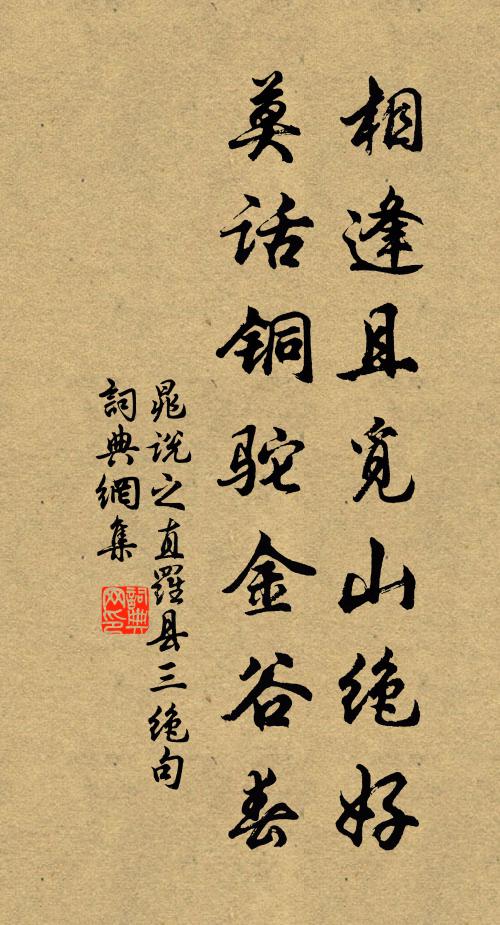 相逢且觅山绝好
莫话铜驼金谷春
晁说之直羅县三绝句
詞典網集
詞典
网印